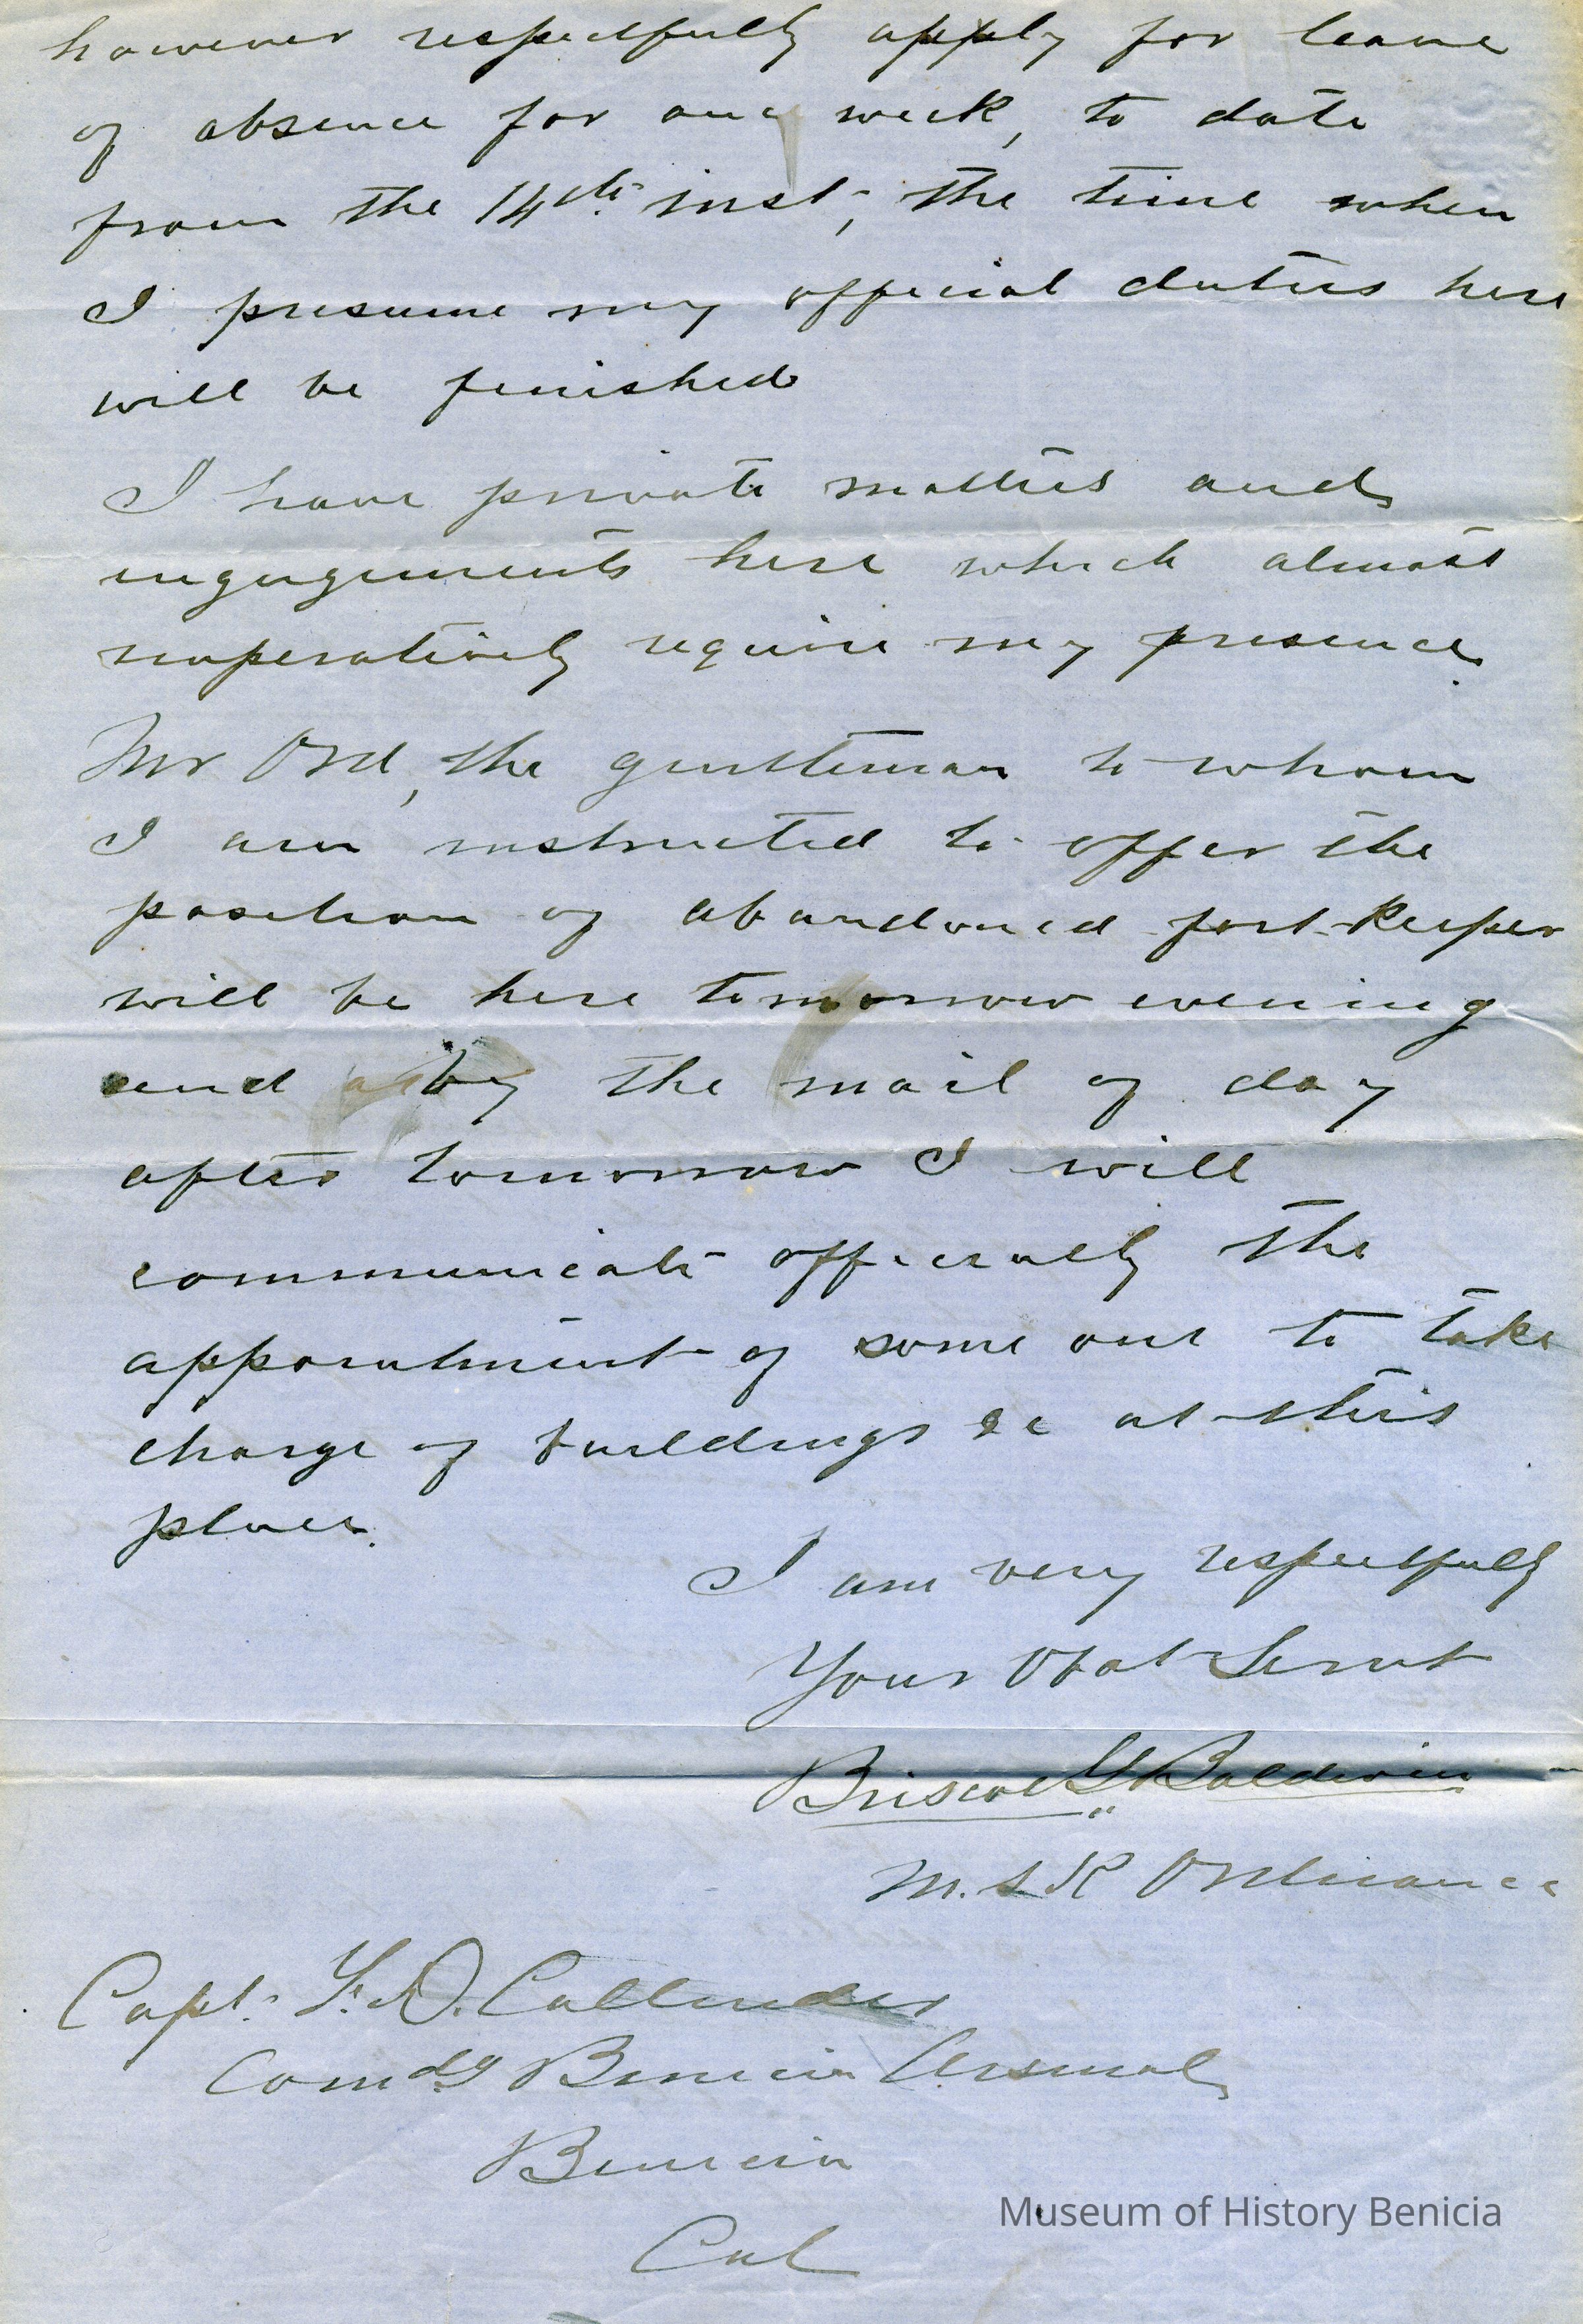 however respectfully apply for leave
of absence for one week, to date
from the 14th inst, the time when
I presume my official duties here
will be finished
I have private matters and
engagements here which almost
imperatively require my presence.
Mr Ord, the gentleman to whom
I am instructed to offer the
position of abandoned post-keeper
will be here tomorrow evening
and by the mail of day
after tomorrow I will
communicate officially the
appointment of some one to take
charge of buildings &c at this
place.
I am very respectfully
Your Obdt Servt
Briscoe G Baldwin
M.S.K Ordinance
Capt. F. D. Callender
Comdg Benicia Arsenal
Benicia
Cal
Museum of History Benicia